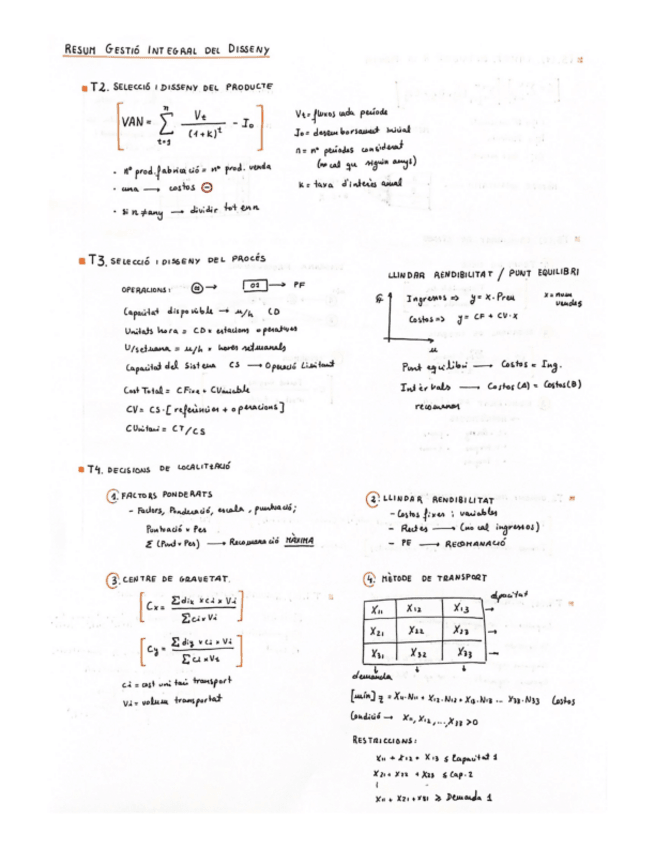 RESUM GESTIÓ INTEGRAL DEL DISSENY
T2. SELECCIÓ I DISSENY DEL PRODUCTE
[VAN = Σ Vt / (1+K)^t - Io]
n
t=1
Vt = fluxos cada període
Io = desemborsament inicial
n = nº períodes considerat
(no cal que siguin anys)
K = taxa d'interès anual
· nº prod. fabricació = nº prod. venda
· una → costos ⊖
· si n ≠ any → dividir tot en n
T3. SELECCIÓ I DISSENY DEL PROCÉS
OPERACIONS: → 01 → PF
Capacitat disponible → u/h CD
Unitats hora = CD × estacions operatives
U/setmana = u/h × hores setmanals
Capacitat del Sistema CS → Operació Limitant
Cost Total = CFixe + CVariable
CV = CS · [referències + operacions]
CUnitari = CT/CS
LLINDAR RENDIBILITAT / PUNT EQUILIBRI
Ingressos => y = x · Preu
x = núm vendes
Costos => y = CF + CV · X
u
Punt equilibri → Costos = Ing.
Intervals → Costos(A) = Costos(B)
recomanar
T4. DECISIONS DE LOCALITZACIÓ
1. FACTORS PONDERATS
- Factors, Ponderació, escala, puntuació;
Puntuació × Pes
Σ (Punt × Pes) → Recomanació MÀXIMA
2. LLINDAR RENDIBILITAT
- Costos fixes i variables
- Rectes → (no cal ingressos)
- PE → RECOMANACIÓ
3. CENTRE DE GRAVETAT.
[Cx = Σdix × ci × Vi / Σci × Vi]
[Cy = Σdiy × ci × Vi / Σci × Vi]
ci = cost unitari transport
Vi = volum transportat
4. MÈTODE DE TRANSPORT
capacitat
X11 X12 X13 →
X21 X22 X23 →
X31 X32 X33 →
demanda
[mín] z = X11·N11 + X12·N12 + X13·N13 ... X33·N33 Costos
Condició → X11, X12, ..., X33 > 0
RESTRICCIONS:
X11 + X12 + X13 ≤ Capacitat 1
X21 + X22 + X23 ≤ Cap. 2
X11 + X21 + X31 ≥ Demanda 1